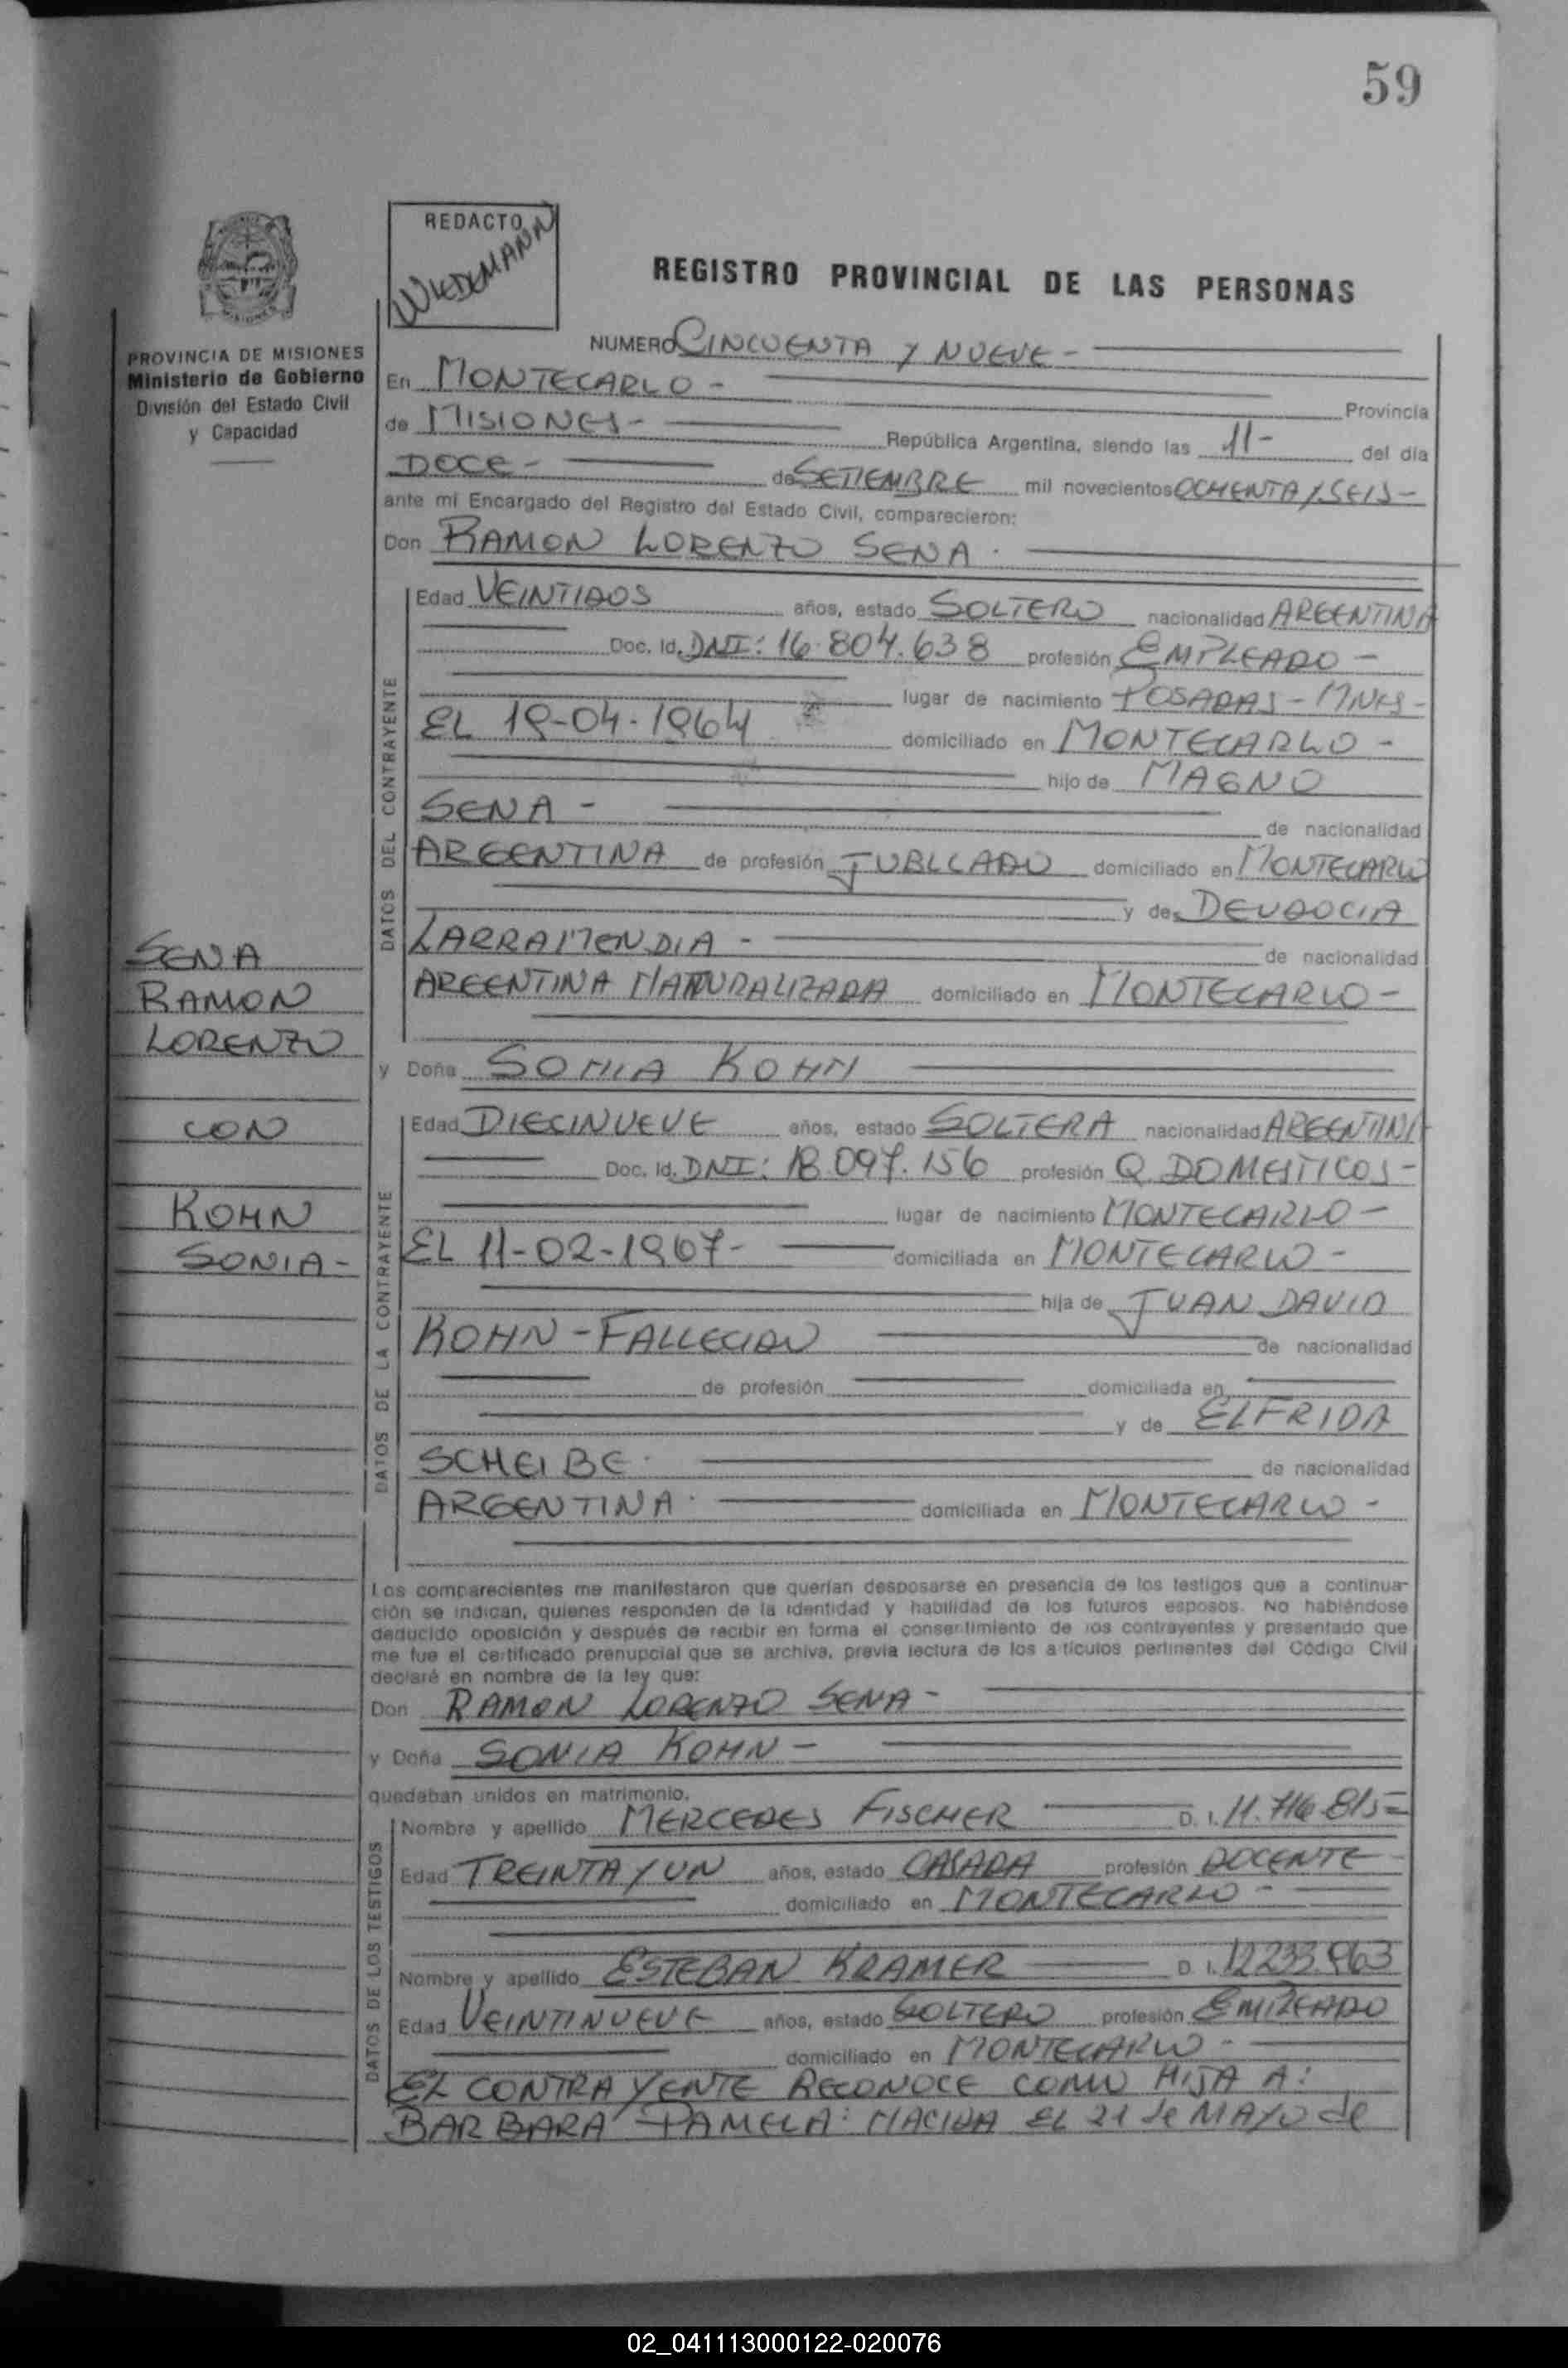 59
REDACTO
WIEDEMANN
REGISTRO PROVINCIAL DE LAS PERSONAS
PROVINCIA DE MISIONES
Ministerio de Gobierno
División del Estado Civil
y Capacidad
NUMERO CINCUENTA Y NUEVE -
En MONTECARLO -
Provincia
de MISIONES - República Argentina, siendo las 11- del día
DOCE - de SETIEMBRE mil novecientos OCHENTA Y SEIS -
ante mi Encargado del Registro del Estado Civil, comparecieron:
Don RAMON LORENZO SENA .
DATOS DEL CONTRAYENTE
Edad VEINTIDOS años, estado SOLTERO nacionalidad ARGENTINA
Doc. Id. DNI: 16.804.638 profesión EMPLEADO -
lugar de nacimiento POSADAS - MNES -
EL 19-04-1964 domiciliado en MONTECARLO -
hijo de MAGNO
SENA - de nacionalidad
ARGENTINA de profesión JUBILADO domiciliado en MONTECARLO
y de DEUDOCIA
LARRAMENDIA - de nacionalidad
ARGENTINA NATURALIZADA domiciliado en MONTECARLO -
SENA
RAMON
LORENZO
CON
KOHN
SONIA -
y Doña SONIA KOHN
DATOS DE LA CONTRAYENTE
Edad DIECINUEVE años, estado SOLTERA nacionalidad ARGENTINA
Doc. Id. DNI: 18.097.156 profesión Q. DOMESTICOS -
lugar de nacimiento MONTECARLO -
EL 11-02-1967 - domiciliada en MONTECARLO -
hija de JUAN DAVID
KOHN - FALLECIDO de nacionalidad
de profesión domiciliada en
y de ELFRIDA
SCHEIBE . de nacionalidad
ARGENTINA . domiciliada en MONTECARLO -
Los comparecientes me manifestaron que querían desposarse en presencia de los testigos que a continua-
ción se indican, quienes responden de la identidad y habilidad de los futuros esposos. No habiéndose
deducido oposición y después de recibir en forma el consentimiento de los contrayentes y presentado que
me fue el certificado prenupcial que se archiva, previa lectura de los artículos pertinentes del Código Civil
declaré en nombre de la ley que:
Don RAMON LORENZO SENA -
y Doña SONIA KOHN -
quedaban unidos en matrimonio.
DATOS DE LOS TESTIGOS
Nombre y apellido MERCEDES FISCHER D. I. 11.716.815 =
Edad TREINTA Y UN años, estado CASADA profesión DOCENTE -
domiciliado en MONTECARLO -
Nombre y apellido ESTEBAN KRAMER D. I. 12.233.963
Edad VEINTINUEVE años, estado SOLTERO profesión EMPLEADO
domiciliado en MONTECARLO -
EL CONTRAYENTE RECONOCE COMO HIJA A:
BARBARA PAMELA: NACIDA EL 21 de MAYO de
02_041113000122-020076